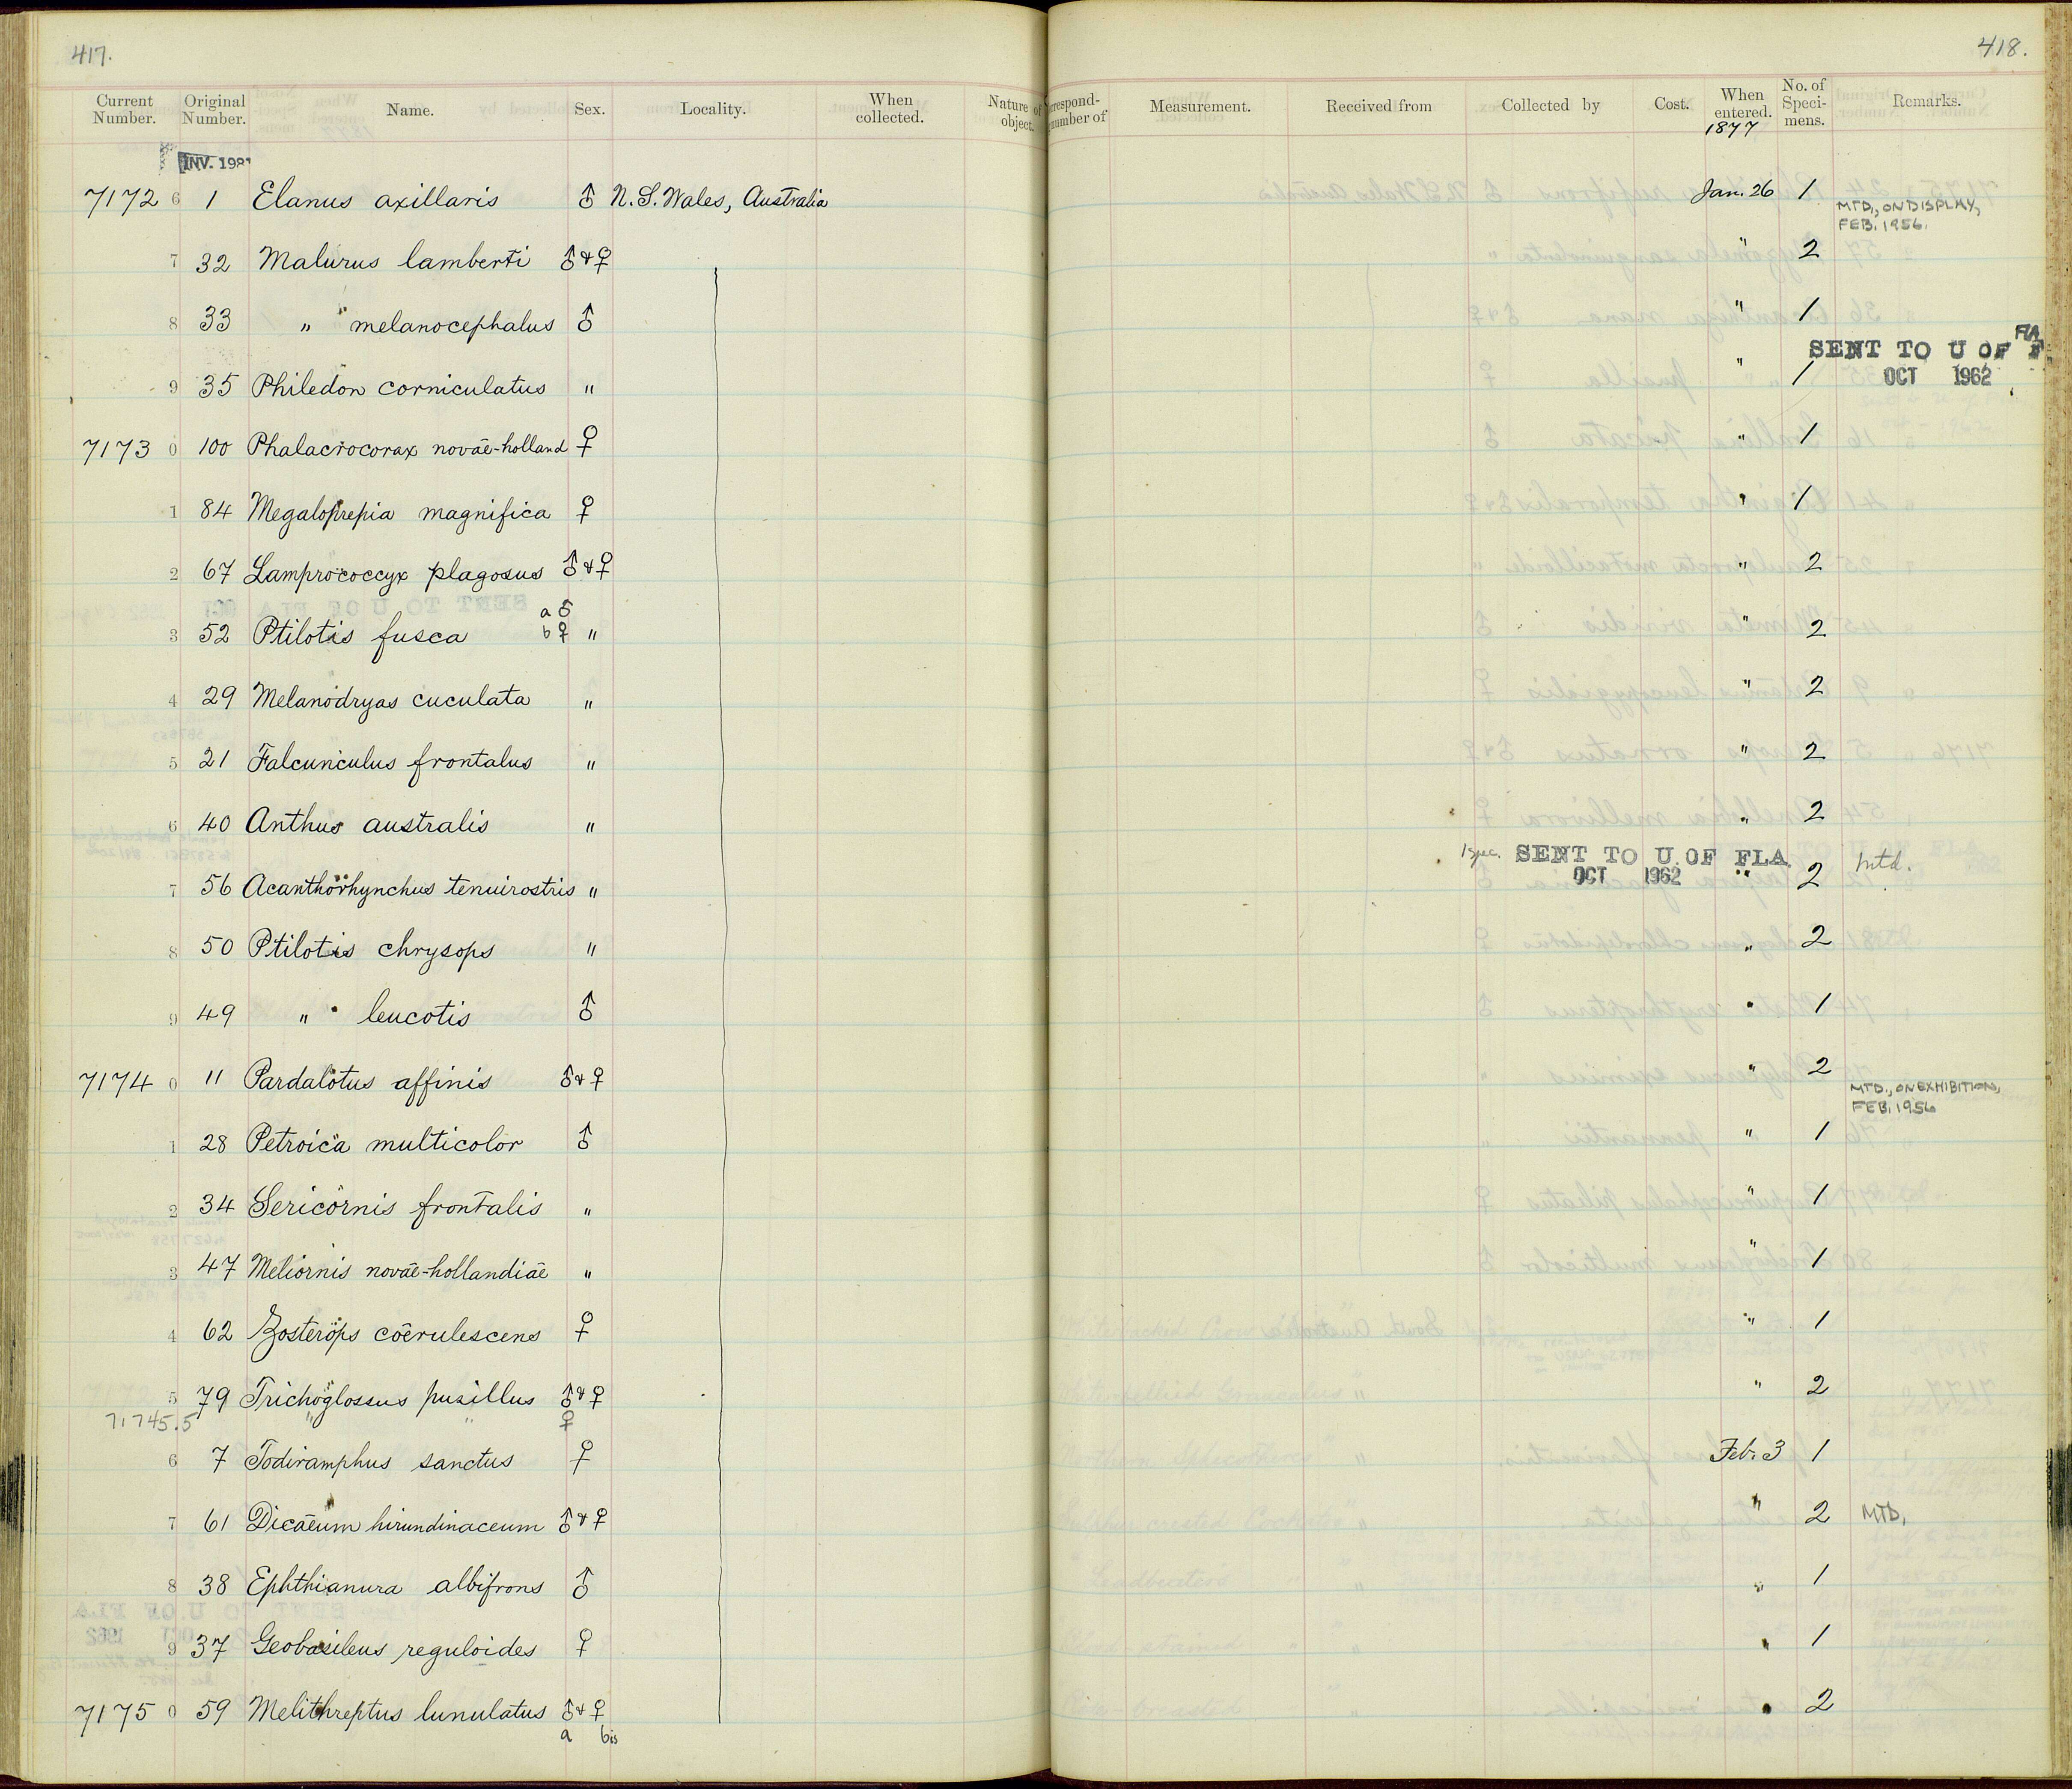 417.
418.
Current Number. Original Number. Name. Sex. Locality. When collected. Nature of object. respond- number of Measurement. Received from Collected by Cost. When entered. No. of Speci- mens. Remarks.
1877
INV. 198
7172 6 1 Elanus axillaris ♂ N. S. Wales, Australia Jan. 26 1 MTD., ON DISPLAY,
FEB. 1956.
7 32 Malurus lamberti ♂ & ♀ " 2
8 33 " melanocephalus ♂ " 1
SENT TO U OF FLA
OCT 1962
9 35 Philedon corniculatus " " 1
7173 0 100 Phalacrocorax novae-holland ♀ " 1
1 84 Megaloprepia magnifica ♀ " 1
2 67 Lamprococcyx plagosus ♂ & ♀ " 2
a ♂
3 52 Ptilotis fusca b ♀ " " 2
4 29 Melanodryas cuculata " " 2
5 21 Falcunculus frontalus " " 2
6 40 Anthus australis " " 2
1 spec. SENT TO U. OF FLA
OCT 1962
7 56 Acanthorhynchus tenuirostris " " 2 Mtd.
8 50 Ptilotis chrysops " " 2
9 49 " leucotis ♂ " 1
7174 0 11 Pardalotus affinis ♂ & ♀ " 2
MTD., ON EXHIBITION,
FEB. 1956
1 28 Petroica multicolor ♂ " 1
2 34 Sericornis frontalis " " 1
3 47 Meliornis novae-hollandiae " " 1
4 62 Zosterops coerulescens ♀ " 1
5 79 Trichoglossus pusillus ♂ & ♀ " 2
71745.5 " " ♀
6 7 Todiramphus sanctus ♀ Feb. 3 1
7 61 Dicaeum hirundinaceum ♂ & ♀ " 2 MTD.
8 38 Ephthianura albifrons ♂ " 1
9 37 Geobasileus reguloides ♀ " 1
7175 0 59 Melithreptus lunulatus ♂ & ♀ " 2
a bis